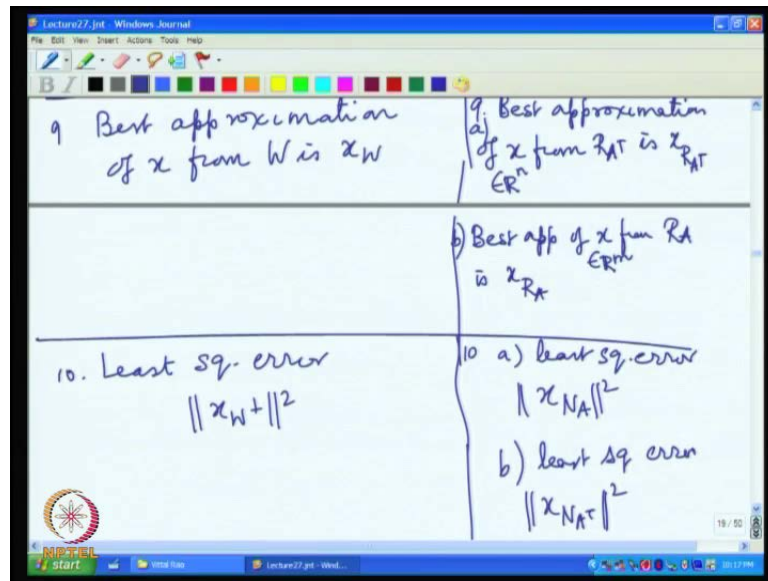 Lecture27.jnt - Windows Journal
File Edit View Insert Actions Tools Help
B I
9 Best approximation
of x from W is x_W
9. Best approximation
a)
of x from R_{A^T} is x_{R_{A^T}}
∈R^n
b) Best app of x from R_A
∈R^m
is x_{R_A}
10. Least sq. error
||x_{W^⊥}||^2
10 a) least sq. error
||x_{N_A}||^2
b) least sq error
||x_{N_{A^T}}||^2
19 / 50
NPTEL
start Vittal Rao Lecture27.jnt - Wind... 10:17 PM